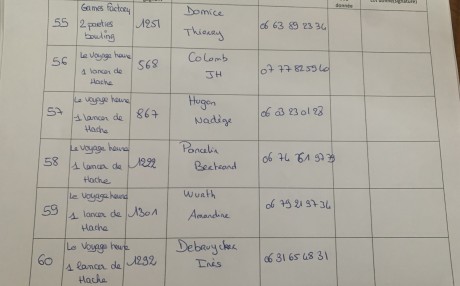 donnée
55 Games Factory 2 parties bowling 1251 Domice Thierry 06 63 89 23 34
56 Le Voyage heure 1 lancer de Hache 568 Colomb JH 07 77 82 59 40
57 Le Voyage heure 1 lancer de Hache 867 Hugon Nadège 06 03 23 01 28
58 Le Voyage heure 1 lancer de Hache 1222 Poncelin Bertrand 06 74 761 97 79
59 Le Voyage heure 1 lancer de Hache 1301 Wurth Amandine 06 79 21 97 34
60 Le Voyage heure 1 lancer de Hache 1292 Inès 06 31 65 48 31